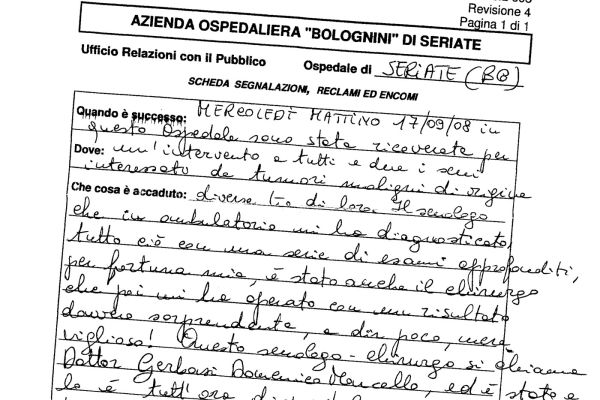 Revisione 4
Pagina 1 di 1
AZIENDA OSPEDALIERA "BOLOGNINI" DI SERIATE
Ufficio Relazioni con il Pubblico Ospedale di SERIATE (BG)
SCHEDA SEGNALAZIONI, RECLAMI ED ENCOMI
Quando è successo: MERCOLEDÌ MATTINO 17/09/08 in
questo Ospedale sono stata ricoverata per
Dove: un'intervento a tutti e due i seni
interessato da tumori maligni di origine
Che cosa è accaduto: diversa tra di loro. Il senologo
che in ambulatorio mi ha diagnosticato,
tutto ciò con una serie di esami approfonditi,
per fortuna mia, è stato anche il chirurgo
che poi mi ha operato con un risultato
davvero sorprendente, a dir poco, mera
viglioso! Questo senologo-chirurgo si chiama
Dottor Gerbasi Domenico Marcello, ed è stato e
lo è tutt'ora